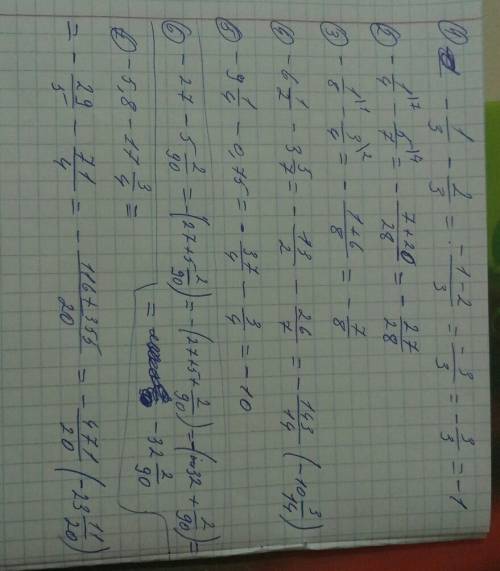 ① - 1/3 - 2/3 = -1-2/3 = -3/3 = - 3/3 = -1
② - 1\7/4 - 5\4/7 = - 7+20/28 = - 27/28
③ - 1\1/8 - 3\2/4 = - 1+6/8 = - 7/8
④ -6 1/2 - 3 5/7 = - 13/2 - 26/7 = - 143/14 (-10 3/14)
⑤ -9 1/4 - 0,75 = - 37/4 - 3/4 = -10
⑥ -27 - 5 2/90 = -(27+5 2/90) = -(27+5+ 2/90) = -(32 + 2/90) =
= -32 2/90
⑦ -5,8 - 17 3/4 =
= - 29/5 - 71/4 = - 116+355/20 = - 471/20 (-23 11/20)